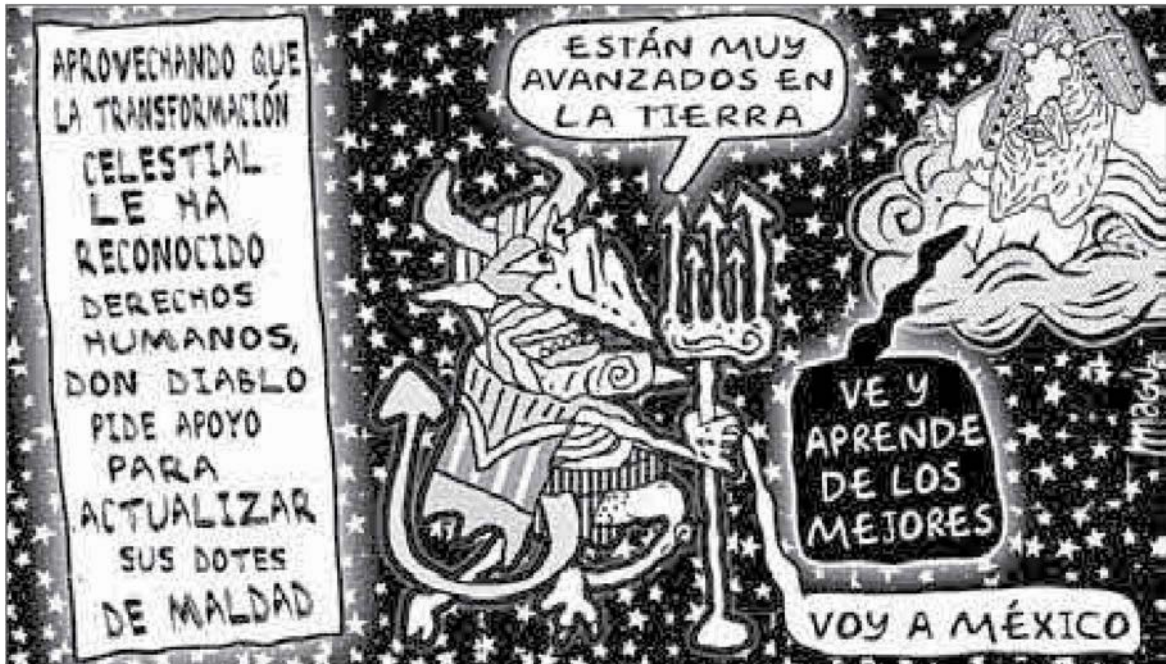 APROVECHANDO QUE
LA TRANSFORMACIÓN
CELESTIAL
LE HA
RECONOCIDO
DERECHOS
HUMANOS,
DON DIABLO
PIDE APOYO
PARA
ACTUALIZAR
SUS DOTES
DE MALDAD
ESTÁN MUY
AVANZADOS EN
LA TIERRA
VE Y
APRENDE
DE LOS
MEJORES
VOY A MÉXICO